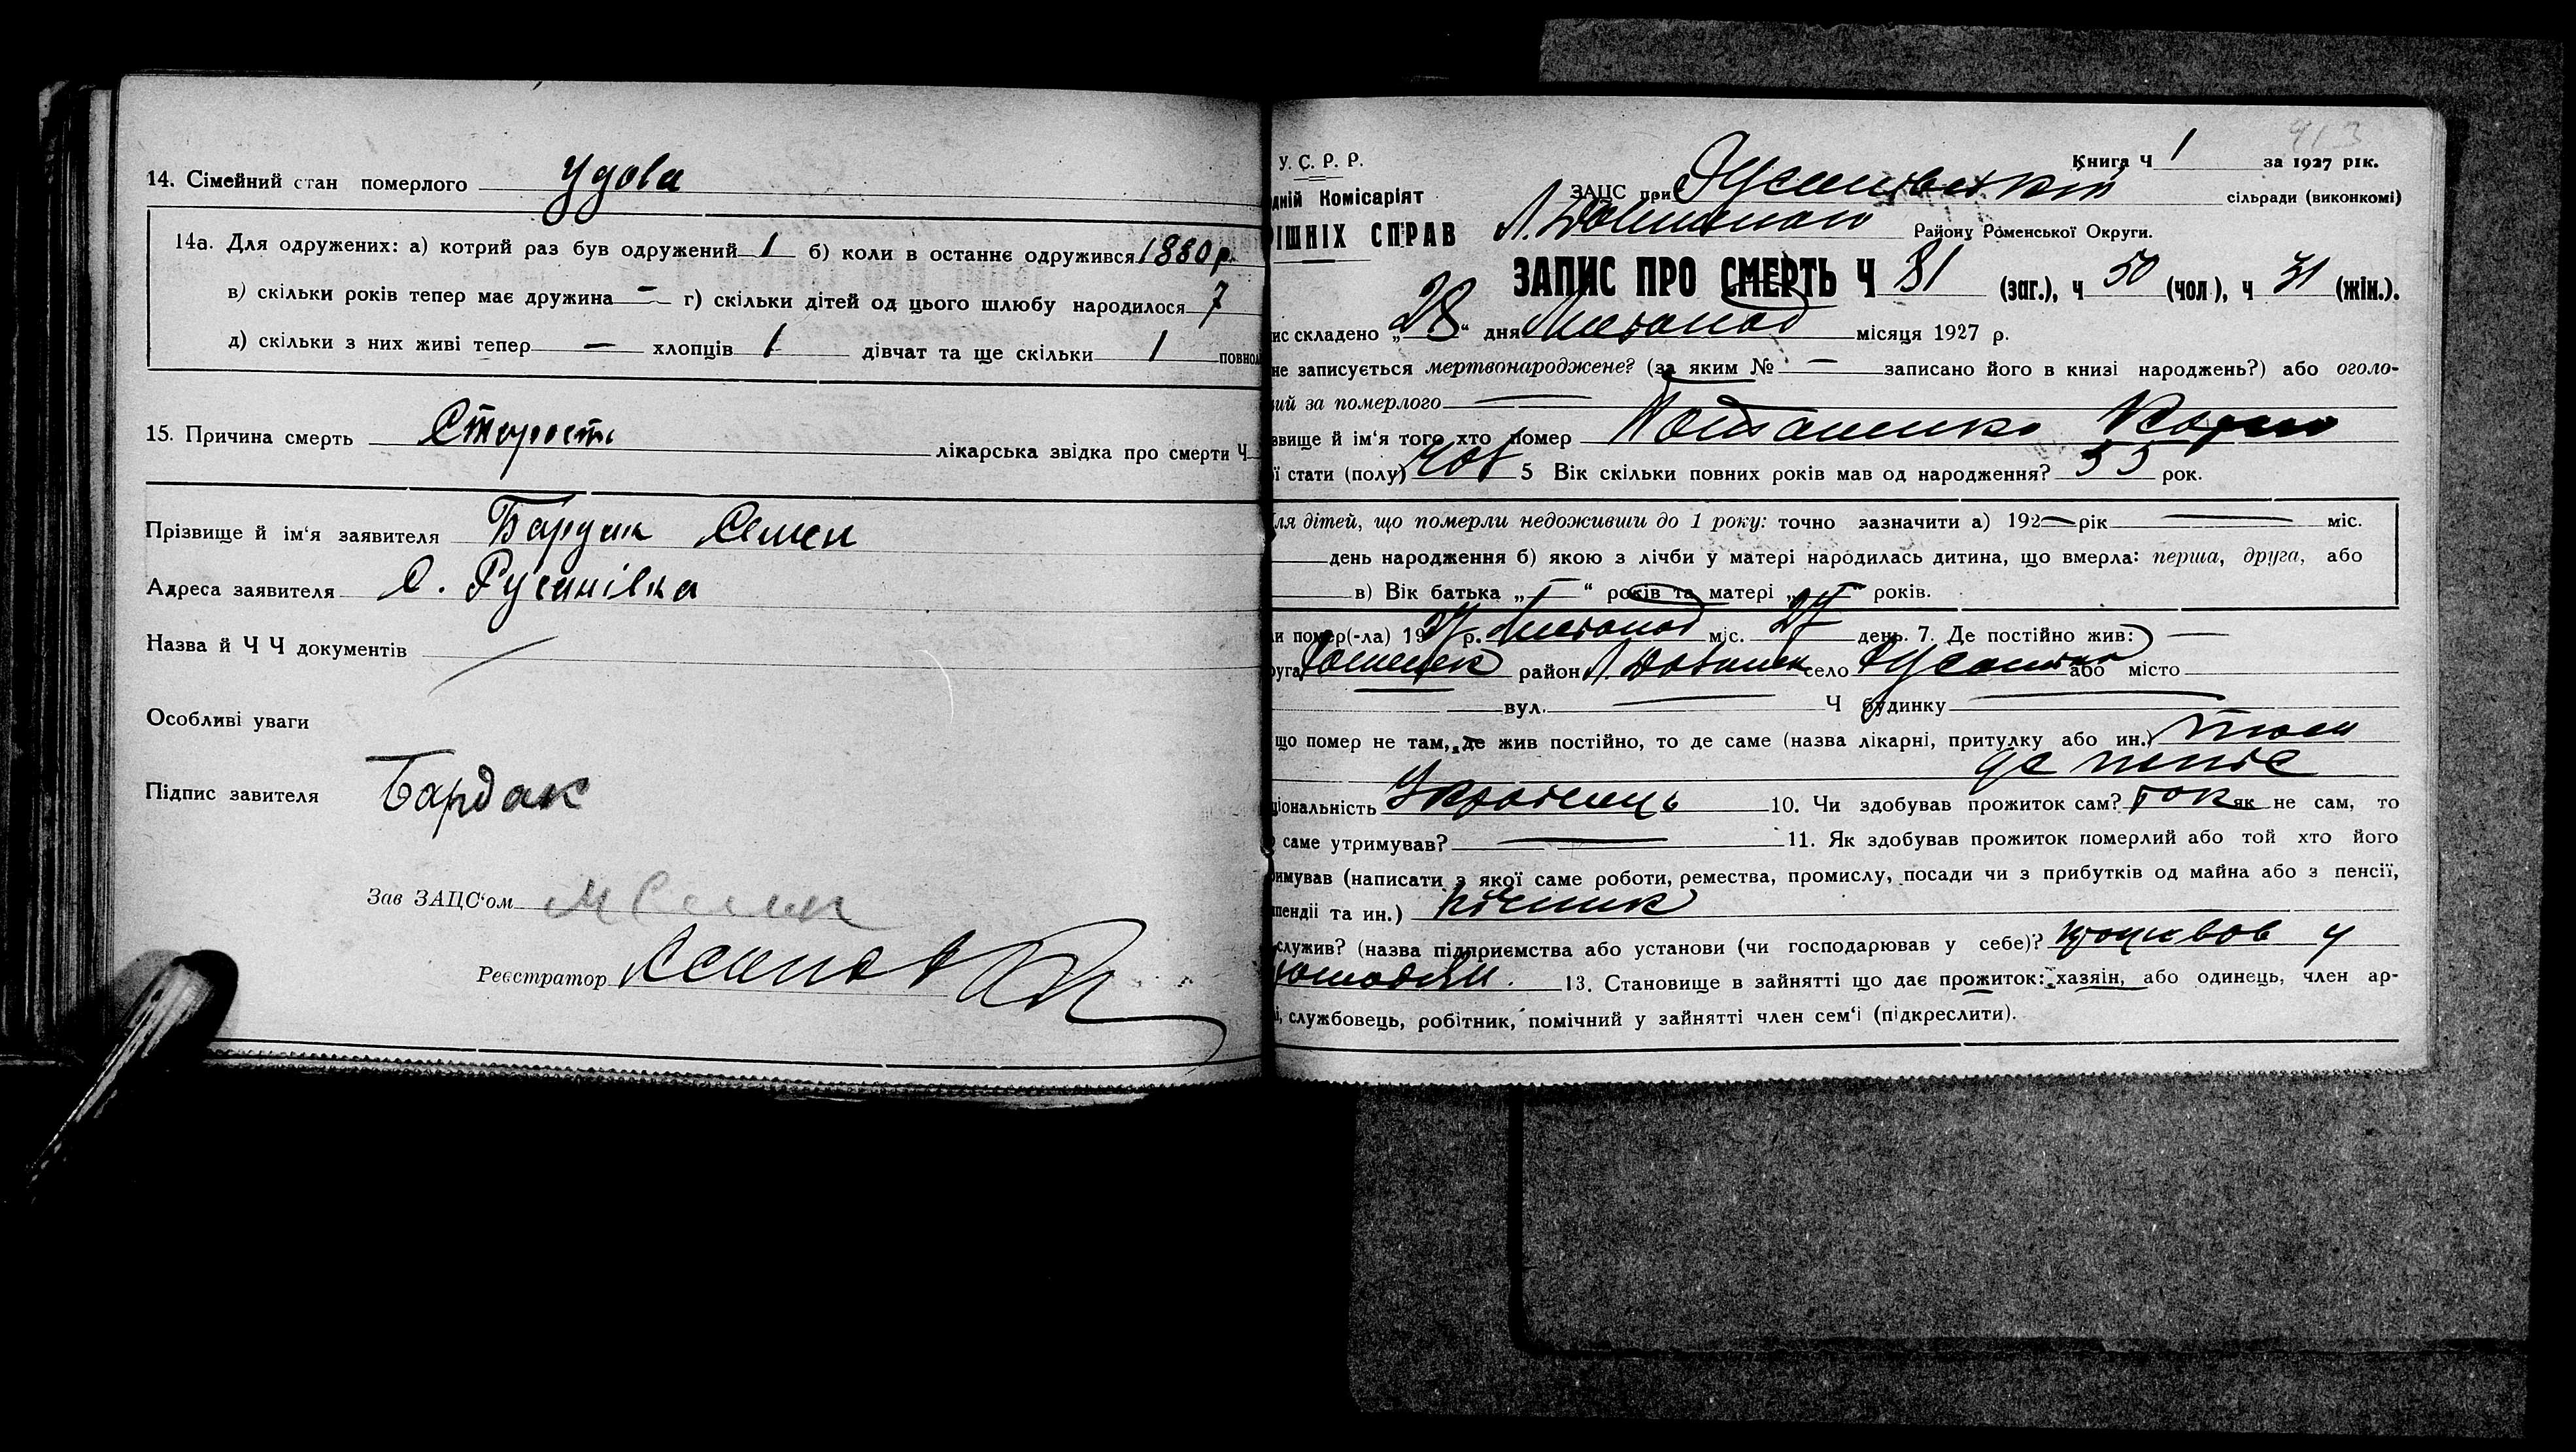 14. Сімейний стан померлого Удова
14а. Для одружених: а) котрий раз був одружений 1 б) коли в останнє одружився 1880 р.
в) скільки років тепер має дружина — г) скільки дітей од цього шлюбу народилося 7
д) скільки з них живі тепер — хлопців 1 дівчат та ще скільки 1 повнол
15. Причина смерть Старость лікарська звідка про смерти Ч
Прізвище й ім'я заявителя Бардак Семен
Адреса заявителя С. Русанівка
Назва й Ч Ч документів
Особливі уваги
Підпис завителя Бардак
Зав ЗАЦС'ом
Реєстратор
413
У. С. Р. Р.
Книга Ч 1 за 1927 рік.
дній Комісаріят
ЗАЦС при Русанівській сільради (виконкомі)
ІШНІХ СПРАВ
Району Роменської Округи.
ЗАПИС ПРО СМЕРТЬ Ч 81 (заг.), ч 50 (чол), ч 31 (жін.).
ис складено „28" дня Листопад місяця 1927 р.
не записується мертвонароджене? (за яким № — записано його в книзі народжень?) або оголо-
ий за померлого —
звище й ім'я того хто помер Потапенко
ї стати (полу) чол 5 Вік скільки повних років мав од народження? 55 рок.
ля дітей, що померли недоживши до 1 року: точно зазначити а) 192— рік — міс.
день народження б) якою з лічби у матері народилась дитина, що вмерла: перша, друга, або
в) Вік батька „—" років та матері „—" років.
и помер(-ла) 1927 р. Листопад міс. 27 день. 7. Де постійно жив: —
руга Роменск район Л. Долинск село Русанівка або місто
вул. — Ч будинку —
що помер не там, де жив постійно, то де саме (назва лікарні, притулку або ин.) там
де жив
ціональність Українець 10. Чи здобував прожиток сам? так як не сам, то
саме утримував? — 11. Як здобував прожиток померлий або той хто його
имував (написати з якої саме роботи, ремества, промислу, посади чи з прибутків од майна або з пенсії,
пендії та ин.)
служив? (назва підприємства або установи (чи господарював у себе)? працював у
13. Становище в зайнятті що дає прожиток: хазяїн, або одинець, член ар-
і, службовець, робітник, помічний у зайнятті член сем'ї (підкреслити).